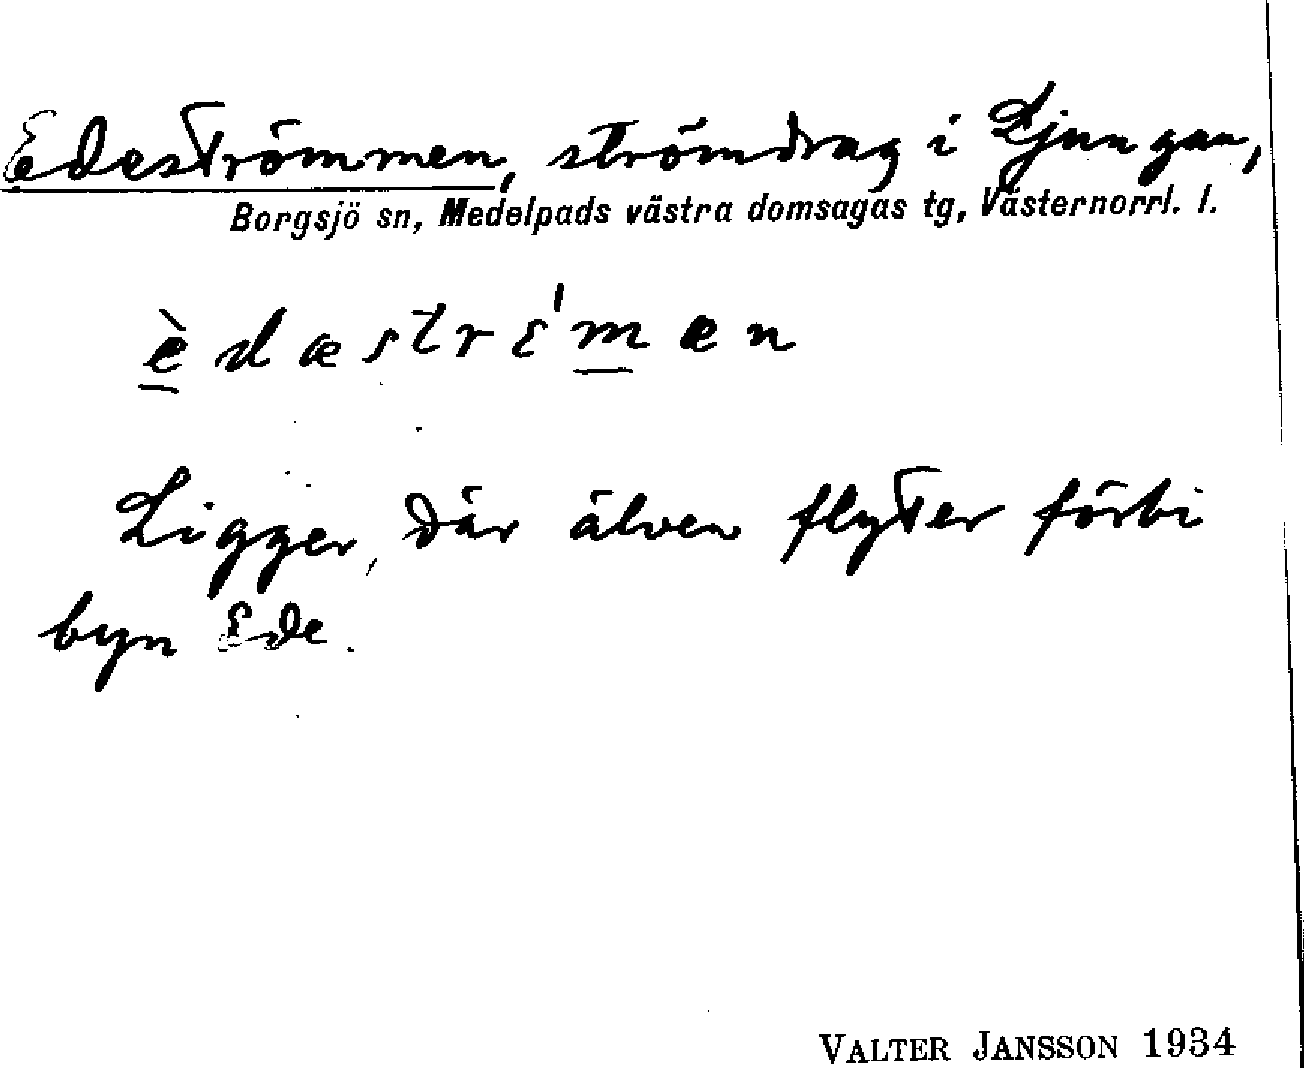 Edeströmmen, strömdrag i Ljungan,
Borgsjö sn, Medelpads västra domsagas tg, Västernorrl. l.
èdæstrɛ'mæn
Ligger, där älven flyter förbi
byn Ede.
VALTER JANSSON 1934